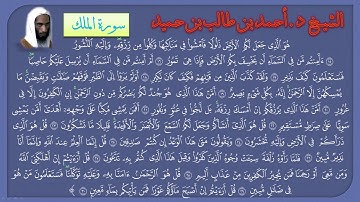 الشيخ د. أحمد بن طالب بن حميد
سورة الملك
هُوَ ٱلَّذِى جَعَلَ لَكُمُ ٱلْأَرْضَ ذَلُولًا فَٱمْشُوا۟ فِى مَنَاكِبِهَا وَكُلُوا۟ مِن رِّزْقِهِۦ وَإِلَيْهِ ٱلنُّشُورُ
ءَأَمِنتُم مَّن فِى ٱلسَّمَآءِ أَن يَخْسِفَ بِكُمُ ٱلْأَرْضَ فَإِذَا هِىَ تَمُورُ أَمْ أَمِنتُم مَّن فِى ٱلسَّمَآءِ أَن يُرْسِلَ عَلَيْكُمْ حَاصِبًا
فَسَتَعْلَمُونَ كَيْفَ نَذِيرِ وَلَقَدْ كَذَّبَ ٱلَّذِينَ مِن قَبْلِهِمْ فَكَيْفَ كَانَ نَكِيرِ أَوَلَمْ يَرَوْا۟ إِلَى ٱلطَّيْرِ فَوْقَهُمْ صَٰٓفَّٰتٍ وَيَقْبِضْنَ مَا
يُمْسِكُهُنَّ إِلَّا ٱلرَّحْمَٰنُ إِنَّهُۥ بِكُلِّ شَىْءٍۭ بَصِيرٌ أَمَّنْ هَٰذَا ٱلَّذِى هُوَ جُندٌ لَّكُمْ يَنصُرُكُم مِّن دُونِ ٱلرَّحْمَٰنِ إِنِ ٱلْكَٰفِرُونَ
إِلَّا فِى غُرُورٍ أَمَّنْ هَٰذَا ٱلَّذِى يَرْزُقُكُمْ إِنْ أَمْسَكَ رِزْقَهُۥ بَل لَّجُّوا۟ فِى عُتُوٍّ وَنُفُورٍ أَفَمَن يَمْشِى مُكِبًّا عَلَىٰ وَجْهِهِۦٓ أَهْدَىٰٓ أَمَّن يَمْشِى
سَوِيًّا عَلَىٰ صِرَٰطٍ مُّسْتَقِيمٍ قُلْ هُوَ ٱلَّذِىٓ أَنشَأَكُمْ وَجَعَلَ لَكُمُ ٱلسَّمْعَ وَٱلْأَبْصَٰرَ وَٱلْأَفْـِٔدَةَ قَلِيلًا مَّا تَشْكُرُونَ قُلْ هُوَ ٱلَّذِى
ذَرَأَكُمْ فِى ٱلْأَرْضِ وَإِلَيْهِ تُحْشَرُونَ وَيَقُولُونَ مَتَىٰ هَٰذَا ٱلْوَعْدُ إِن كُنتُمْ صَٰدِقِينَ قُلْ إِنَّمَا ٱلْعِلْمُ عِندَ ٱللَّهِ وَإِنَّمَآ أَنَا۠
نَذِيرٌ مُّبِينٌ فَلَمَّا رَأَوْهُ زُلْفَةً سِيٓـَٔتْ وُجُوهُ ٱلَّذِينَ كَفَرُوا۟ وَقِيلَ هَٰذَا ٱلَّذِى كُنتُم بِهِۦ تَدَّعُونَ قُلْ أَرَءَيْتُمْ إِنْ أَهْلَكَنِىَ ٱللَّهُ
وَمَن مَّعِىَ أَوْ رَحِمَنَا فَمَن يُجِيرُ ٱلْكَٰفِرِينَ مِنْ عَذَابٍ أَلِيمٍ قُلْ هُوَ ٱلرَّحْمَٰنُ ءَامَنَّا بِهِۦ وَعَلَيْهِ تَوَكَّلْنَا فَسَتَعْلَمُونَ مَنْ هُوَ
فِى ضَلَٰلٍ مُّبِينٍ قُلْ أَرَءَيْتُمْ إِنْ أَصْبَحَ مَآؤُكُمْ غَوْرًا فَمَن يَأْتِيكُم بِمَآءٍ مَّعِينٍۭ